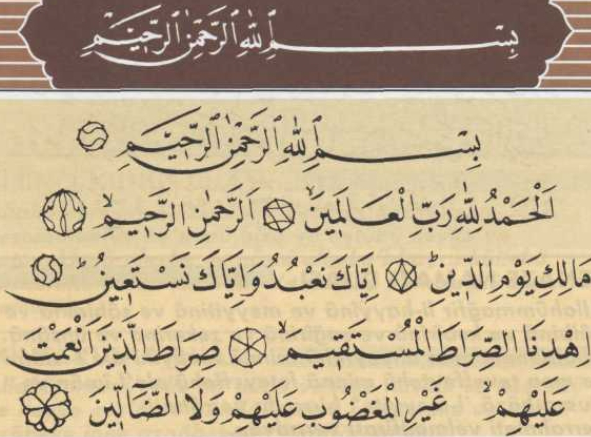 بِسْمِ اللّٰهِ الرَّحْمٰنِ الرَّحِيْمِ
بِسْمِ اللّٰهِ الرَّحْمٰنِ الرَّحِيْمِ
اَلْحَمْدُ لِلّٰهِ رَبِّ الْعَالَمِينَۙ اَلرَّحْمٰنِ الرَّحِيْمِۙ
مَالِكِ يَوْمِ الدّ۪ينِۜ اِيَّاكَ نَعْبُدُ وَاِيَّاكَ نَسْتَع۪ينُۜ
اِهْدِنَا الصِّرَاطَ الْمُسْتَق۪يمَۙ صِرَاطَ الَّذ۪ينَ اَنْعَمْتَ
عَلَيْهِمْ غَيْرِ الْمَغْضُوبِ عَلَيْهِمْ وَلَا الضَّٓالّ۪ينَ